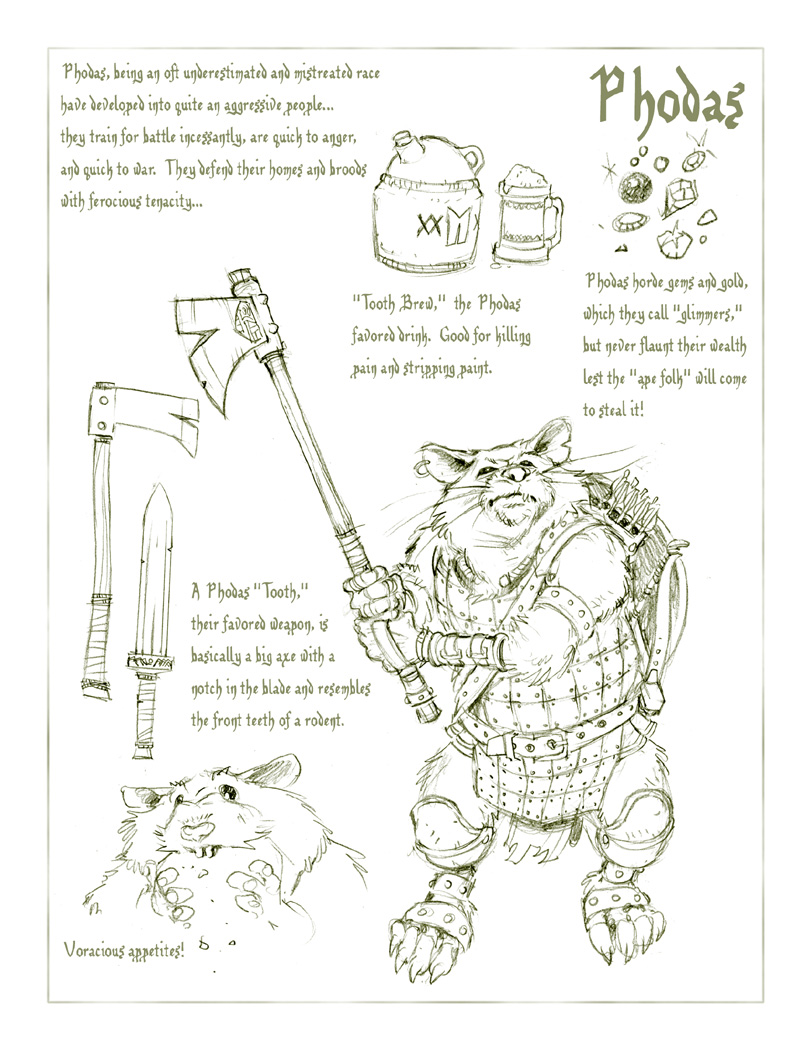 Phodas, being an oft underestimated and mistreated race
have developed into quite an aggressive people...
they train for battle incessantly, are quick to anger,
and quick to war. They defend their homes and broods
with ferocious tenacity...
Phodas
XX
"Tooth Brew," the Phodas
favored drink. Good for killing
pain and stripping paint.
Phodas horde gems and gold,
which they call "glimmers,"
but never flaunt their wealth
lest the "ape folk" will come
to steal it!
A Phodas "Tooth,"
their favored weapon, is
basically a big axe with a
notch in the blade and resembles
the front teeth of a rodent.
Voracious appetites!